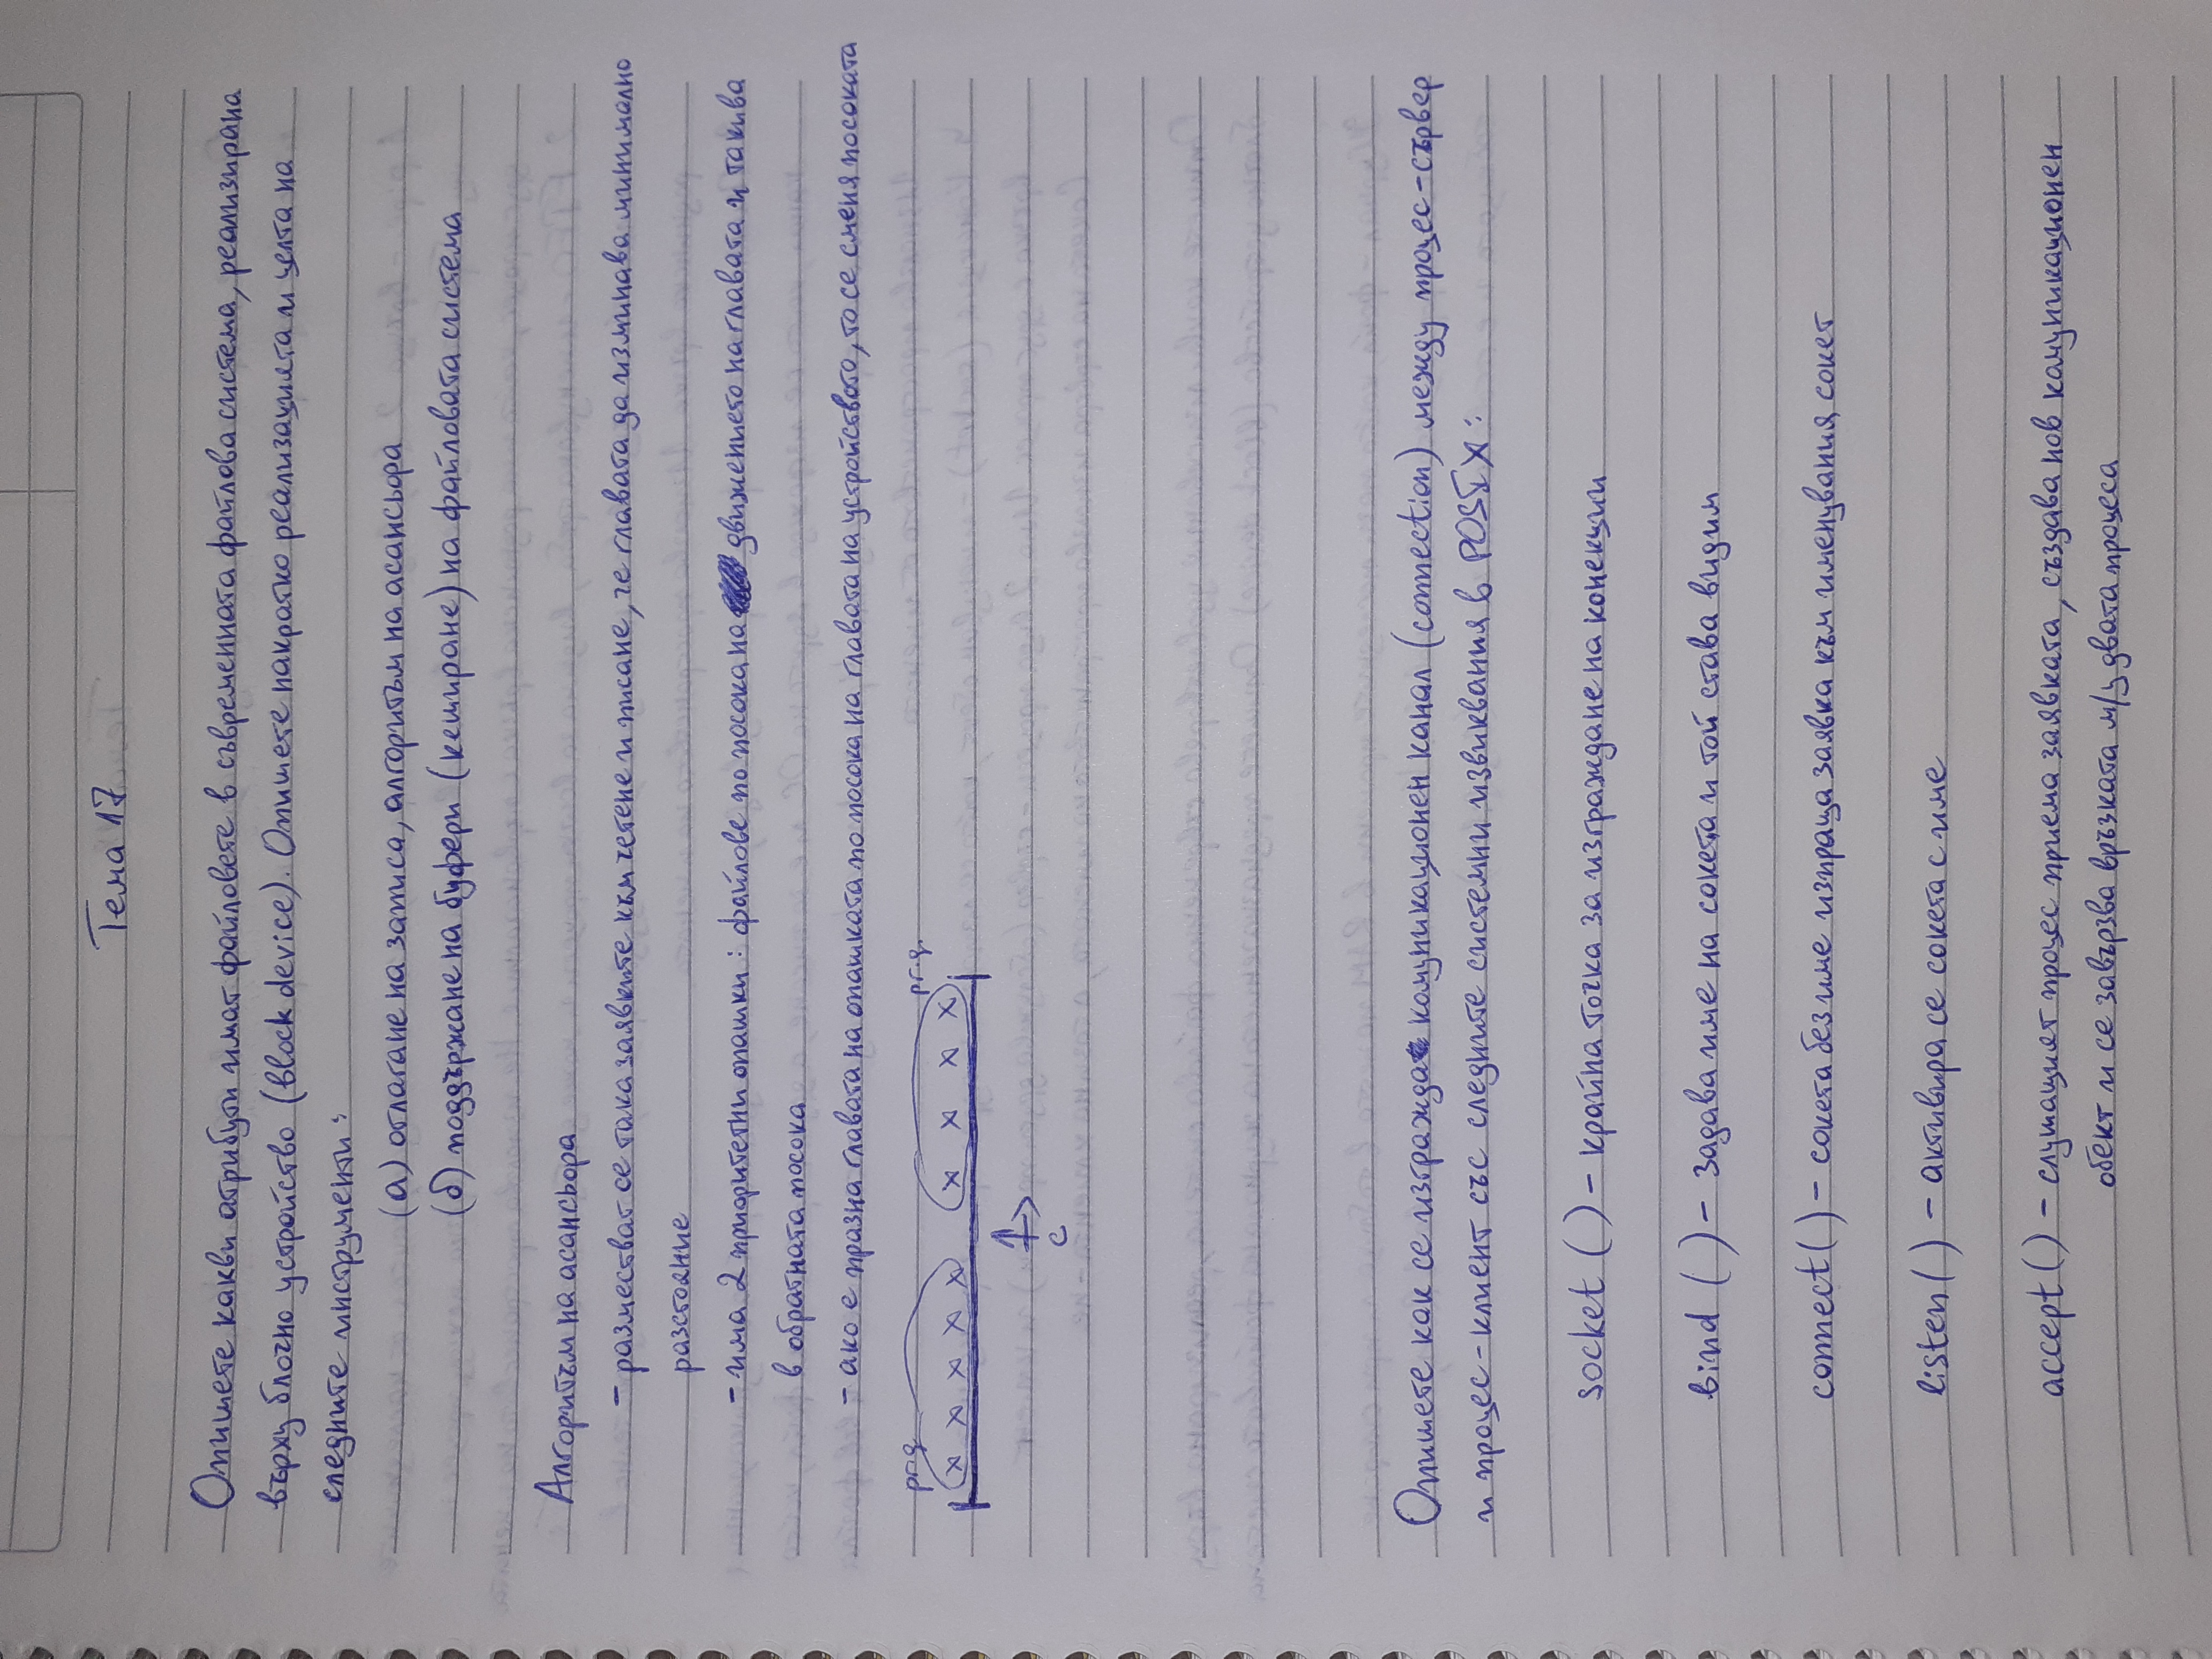 Тема 17
Опишете какви атрибути имат файловете в съвременната файлова система, реализирана
върху блочно устройство (block device). Опишете накратко реализацията и целта на
следните инструменти:
(а) отлагане на записа, алгоритъм на асансьора
(б) поддържане на буфери (кеширане) на файловата система
Алгоритъм на асансьора
- разместват се така заявките към четене и писане, че главата да изминава минимално
разстояние
- има 2 приоритетни опашки: файлове по посока на движението на главата и такива
в обратната посока
- ако е празна главата на опашката по посока на главата на устройството, то се сменя посоката
pr.q pr.q.
x x x x x x x x x
c
Опишете как се изгражда комуникационен канал (connection) между процес-сървер
и процес-клиент със следните системни извиквания в POSIX:
socket () - крайна точка за изграждане на конекции
bind () - задава име на сокета и той става видим
connect() - сокета без име изпраща заявка към именувания сокет
listen() - активира се сокета с име
accept() - слушащият процес приема заявката, създава нов комуникационен
обект и се завързва връзката м/у двата процеса